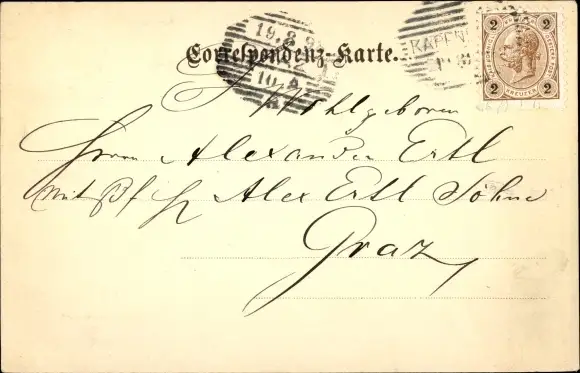 19.8.9
KAPFEN
2 2
Correspondenz-Karte.
10.
KREUZER
2 2
Wohlgeboren
Herrn Alexander Ertl
Alex Ertl Söhne
Graz